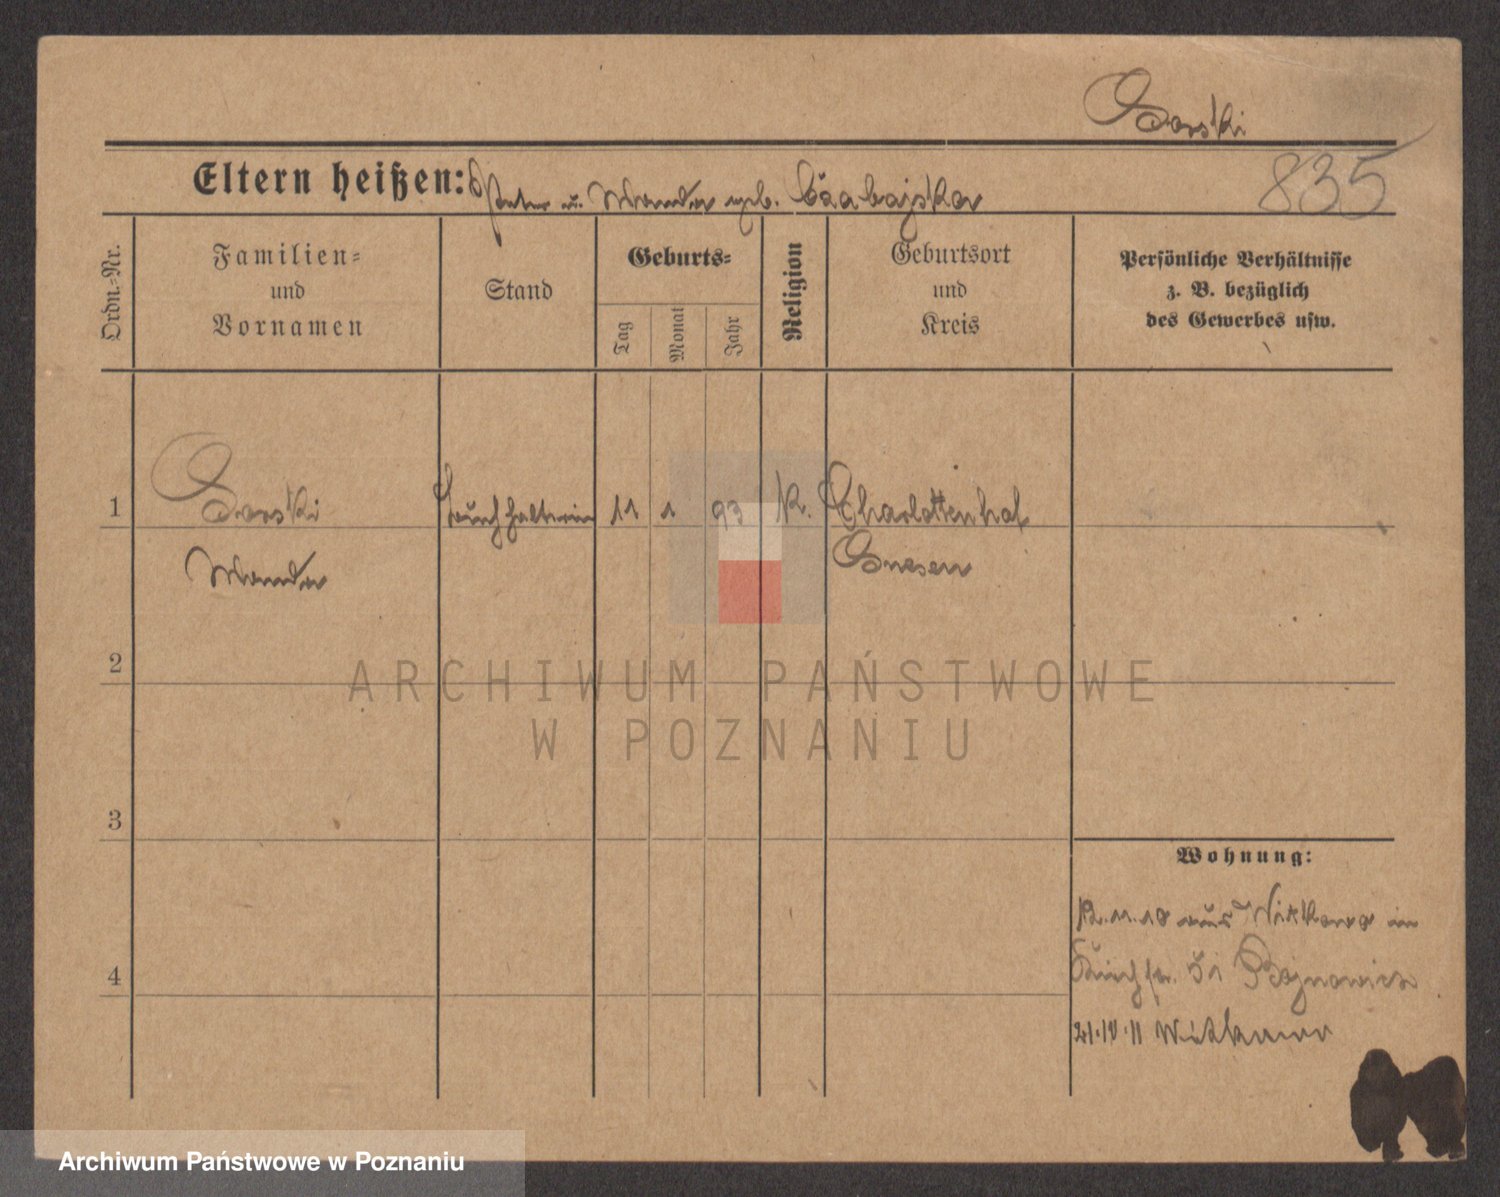 Gorski
835
Eltern heißen: Peter u. Wanda geb. Czabajska
Ordn.-Nr.
Familien-
und
Vornamen
Stand
Geburts-
Tag
Monat
Jahr
Religion
Geburtsort
und
Kreis
Persönliche Verhältnisse
z. B. bezüglich
des Gewerbes usw.
1
Gorski
Wanda
Buchhalterin
11
1
93
K.
Charlottenhof
Gnesen
2
3
4
Wohnung:
12.11.10 aus Witkowo in
51
21.IV.11 Witkowo
ARCHIWUM PAŃSTWOWE
W POZNANIU
Archiwum Państwowe w Poznaniu